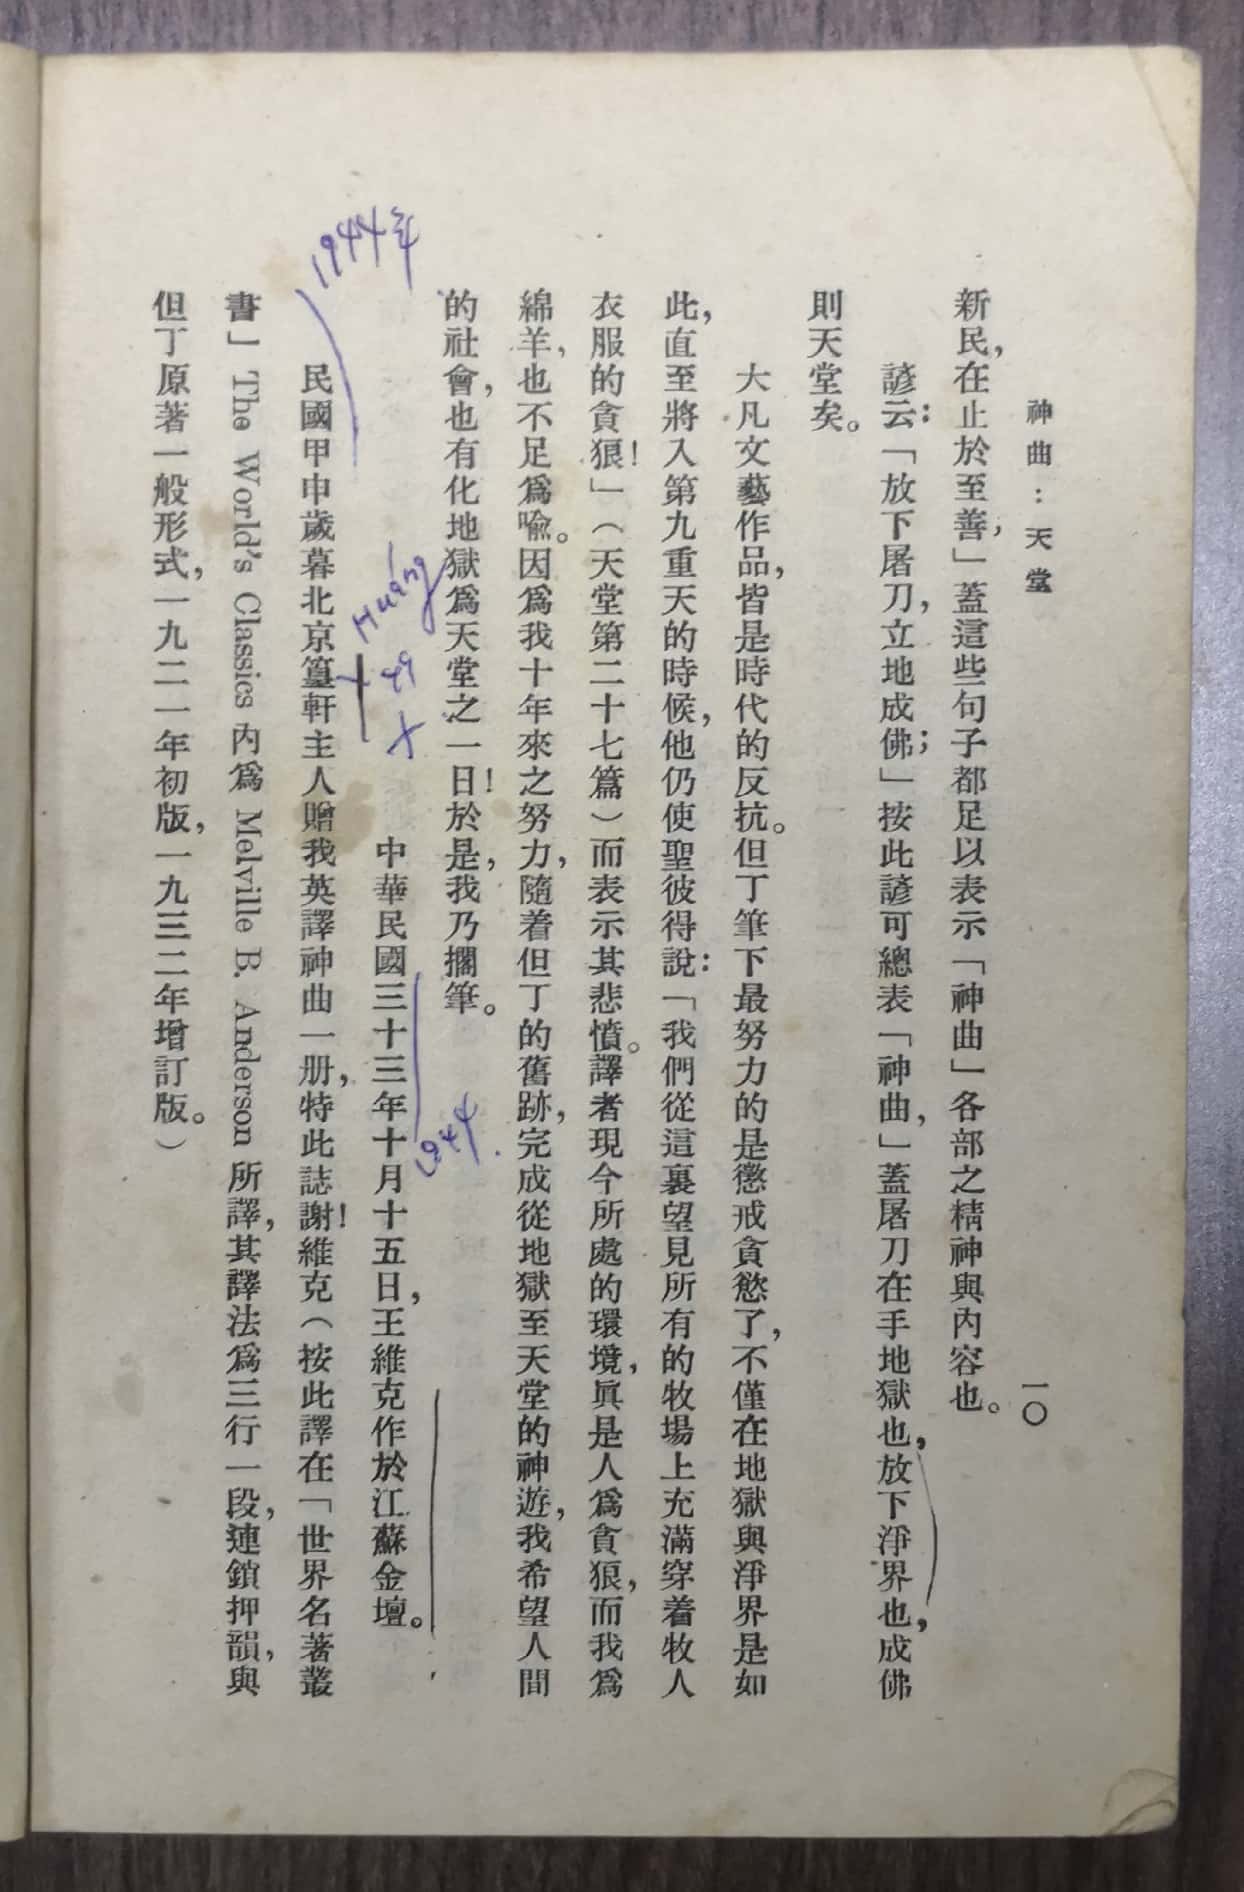 神曲：天堂
一〇
新民，在止於至善，」蓋這些句子都足以表示「神曲」各部之精神與內容也。
諺云：「放下屠刀，立地成佛；」按此諺可總表「神曲，」蓋屠刀在手地獄也，放下淨界也，成佛
則天堂矣。
大凡文藝作品，皆是時代的反抗。但丁筆下最努力的是懲戒貪慾了，不僅在地獄與淨界是如
此，直至將入第九重天的時候，他仍使聖彼得說：「我們從這裏望見所有的牧場上充滿穿着牧人
衣服的貪狼！」（天堂第二十七篇）而表示其悲憤。譯者現今所處的環境，眞是人爲貪狼，而我爲
綿羊，也不足爲喩。因爲我十年來之努力，隨着但丁的舊跡，完成從地獄至天堂的神遊，我希望人間
的社會，也有化地獄爲天堂之一日！於是，我乃擱筆。
中華民國三十三年十月十五日，王維克作於江蘇金壇。
1944
民國甲申歲暮北京篁軒主人贈我英譯神曲一册，特此誌謝！維克（按此譯在「世界名著叢
1944年
Huáng
書」The World's Classics 內爲 Melville B. Anderson 所譯，其譯法爲三行一段，連鎖押韻，與
但丁原著一般形式，一九二一年初版，一九三二年增訂版。）